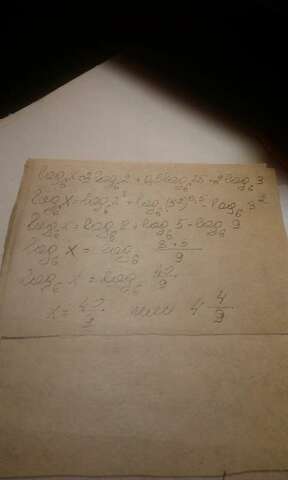 log₆x = 3log₆2 + 0,5log₆25 - 2log₆3
log₆x = log₆2³ + log₆(5²)^0,5 - log₆3²
log₆x = log₆8 + log₆5 - log₆9
log₆x = log₆ 8·5/9
log₆x = log₆ 40/9
x = 40/9 или 4 4/9